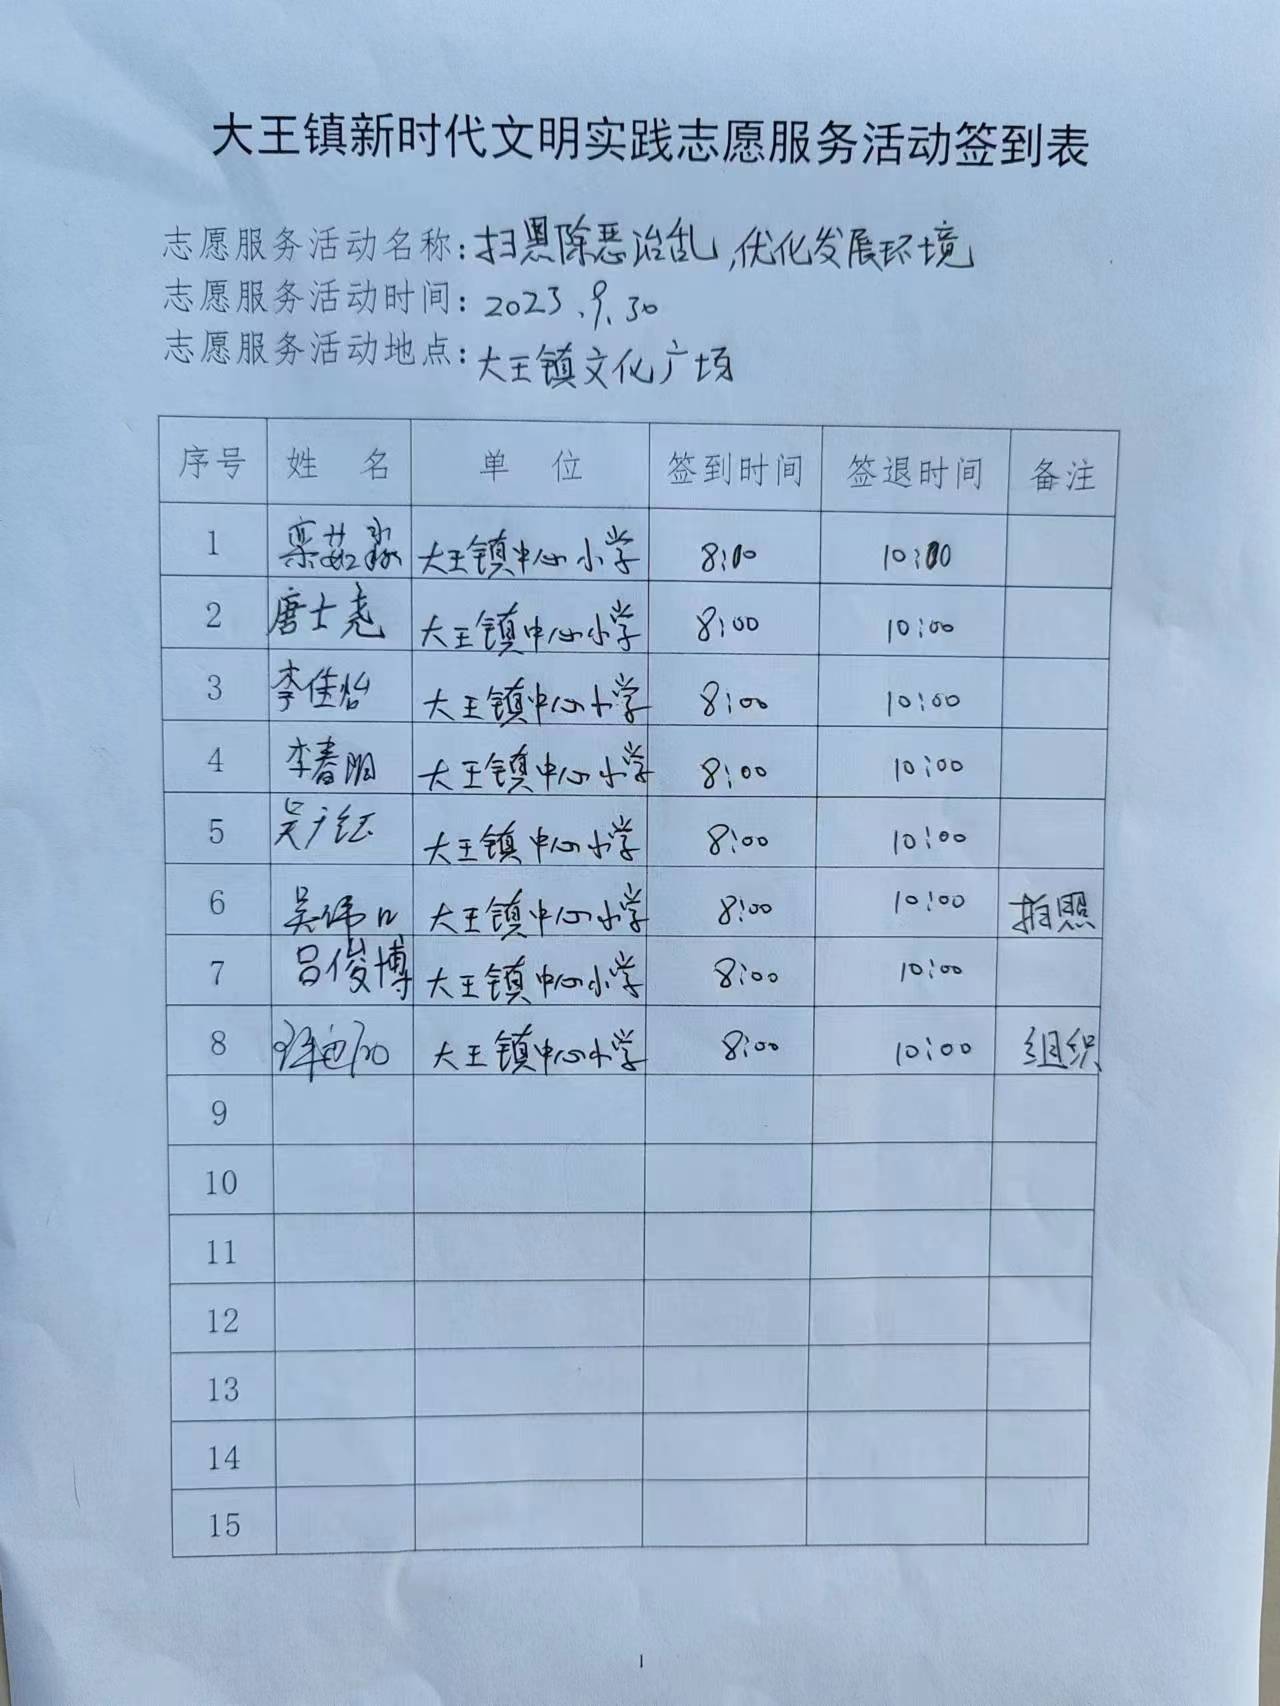 大王镇新时代文明实践志愿服务活动签到表
志愿服务活动名称：扫黑除恶治乱，优化发展环境
志愿服务活动时间：2023.9.30
志愿服务活动地点：大王镇文化广场
序号 姓 名 单 位 签到时间 签退时间 备注
1 栾茹淼 大王镇中心小学 8:10 10:10
2 唐士尧 大王镇中心小学 8:00 10:00
3 李佳怡 大王镇中心小学 8:00 10:00
4 李春明 大王镇中心小学 8:00 10:00
5 吴广钰 大王镇中心小学 8:00 10:00
6 大王镇中心小学 8:00 10:00 拍照
7 吕俊博 大王镇中心小学 8:00 10:00
8 大王镇中心小学 8:00 10:00 组织
9
10
11
12
13
14
15
1